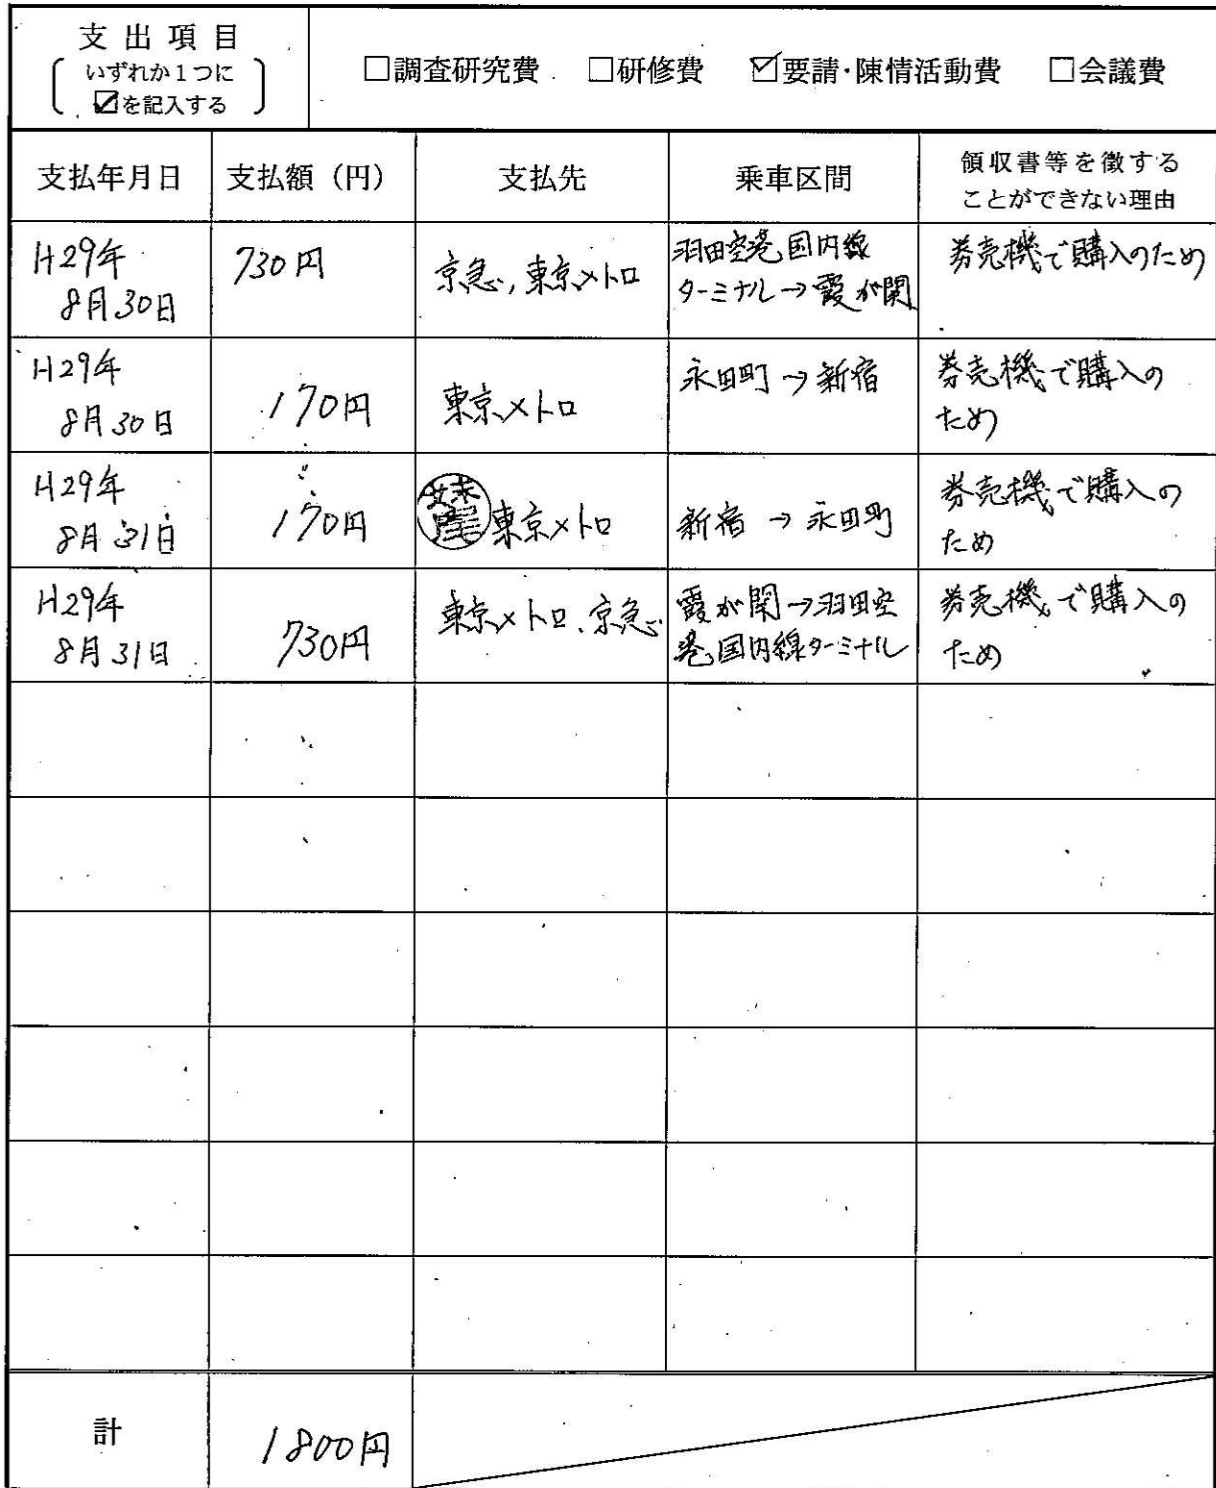 支出項目
いずれか1つに
☑を記入する
□調査研究費 □研修費 ☑要請・陳情活動費 □会議費
支払年月日 支払額（円） 支払先 乗車区間 領収書等を徴する
ことができない理由
H29年
8月30日
730円
京急，東京メトロ
羽田空港国内線
ターミナル→霞が関
券売機で購入のため
H29年
8月30日
170円
東京メトロ
永田町→新宿
券売機で購入の
ため
H29年
8月31日
170円
東京メトロ
新宿→永田町
券売機で購入の
ため
H29年
8月31日
730円
東京メトロ、京急
霞が関→羽田空
港国内線ターミナル
券売機で購入の
ため
計 1800円